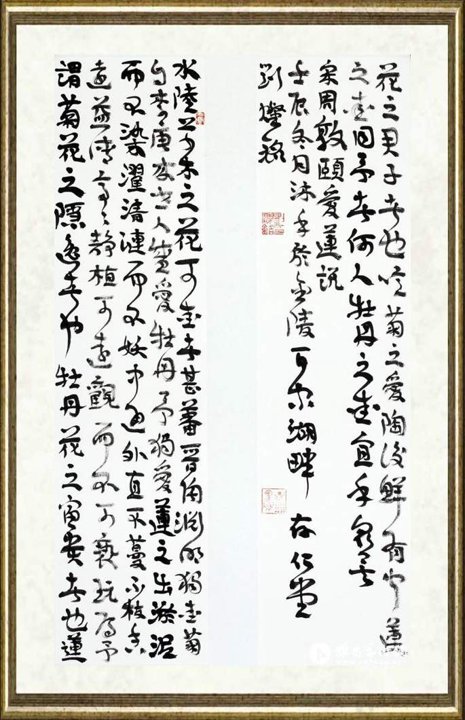 水陸草木之花可愛者甚蕃晉陶淵明獨愛菊
自李唐來世人盛愛牡丹予獨愛蓮之出淤泥
而不染濯清漣而不妖中通外直不蔓不枝香
遠益清亭亭靜植可遠觀而不可褻玩焉予
謂菊花之隱逸者也牡丹花之富貴者也蓮
花之君子者也噫菊之愛陶後鮮有聞蓮
之愛同予者何人牡丹之愛宜乎衆矣
宋周敦頤愛蓮說
壬辰冬月沐手於金陵百家湖畔存仁堂
劉燦銘